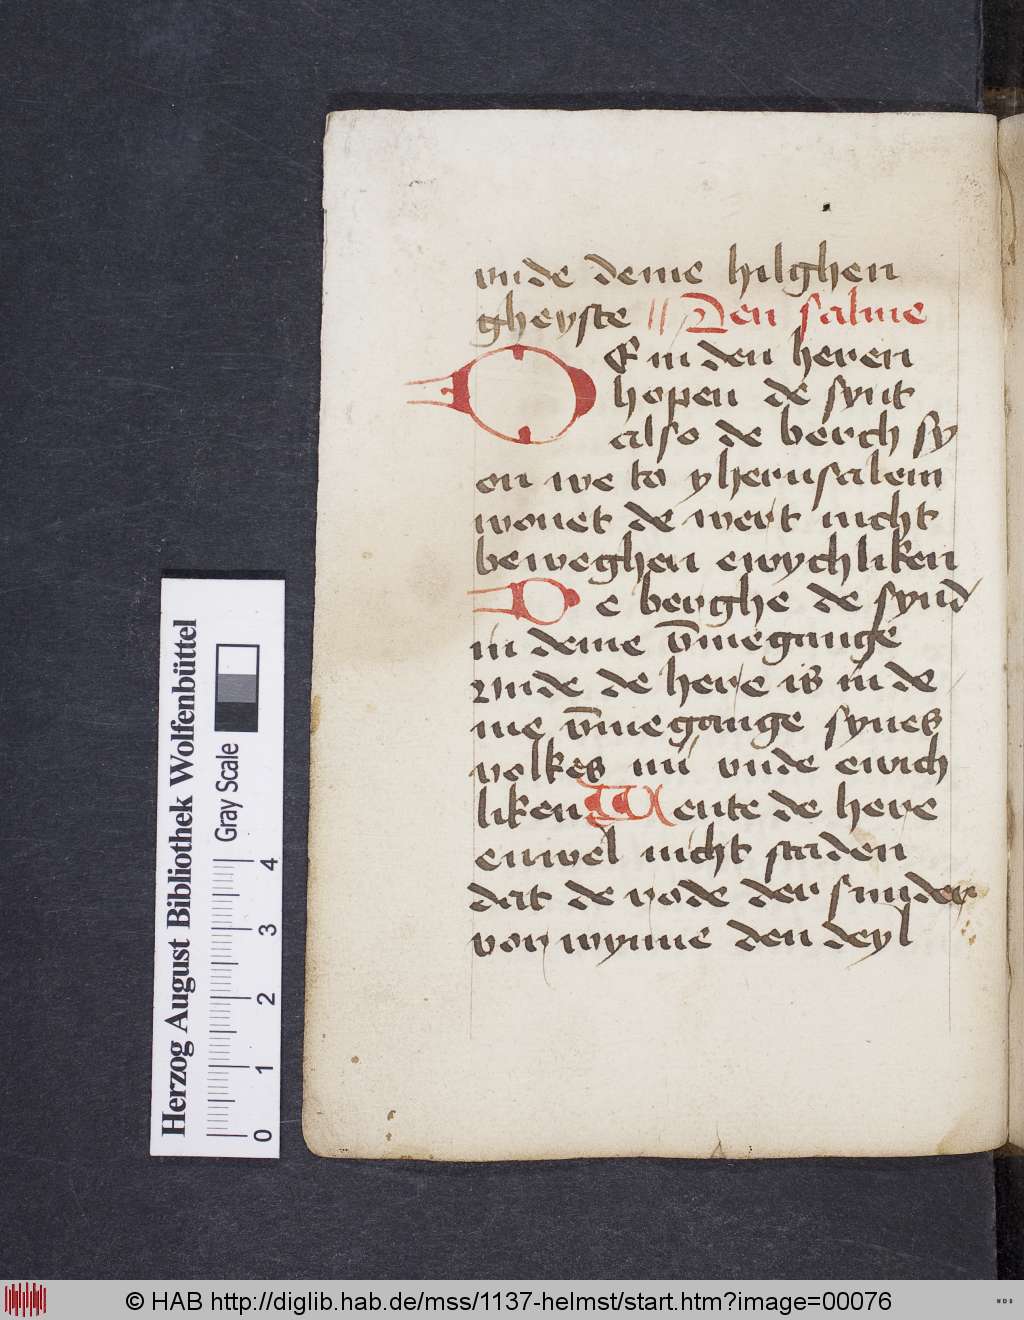 vnde deme hilghen
gheyste // Den salme
DE in den heren
hopen de synt
also de berch sy
on we to yherusalem
wonet de wert nicht
beweghen ewychliken
De berghe de synd
in deme vm̄megange
vnde de here is in de
me vm̄megange synes
volkes nu vnde ewich
liken Wente de here
enwel nicht staden
dat de rode der sunder
vor wynne den deyl
Herzog August Bibliothek Wolfenbüttel
Gray Scale
0 1 2 3 4
© HAB http://diglib.hab.de/mss/1137-helmst/start.htm?image=00076